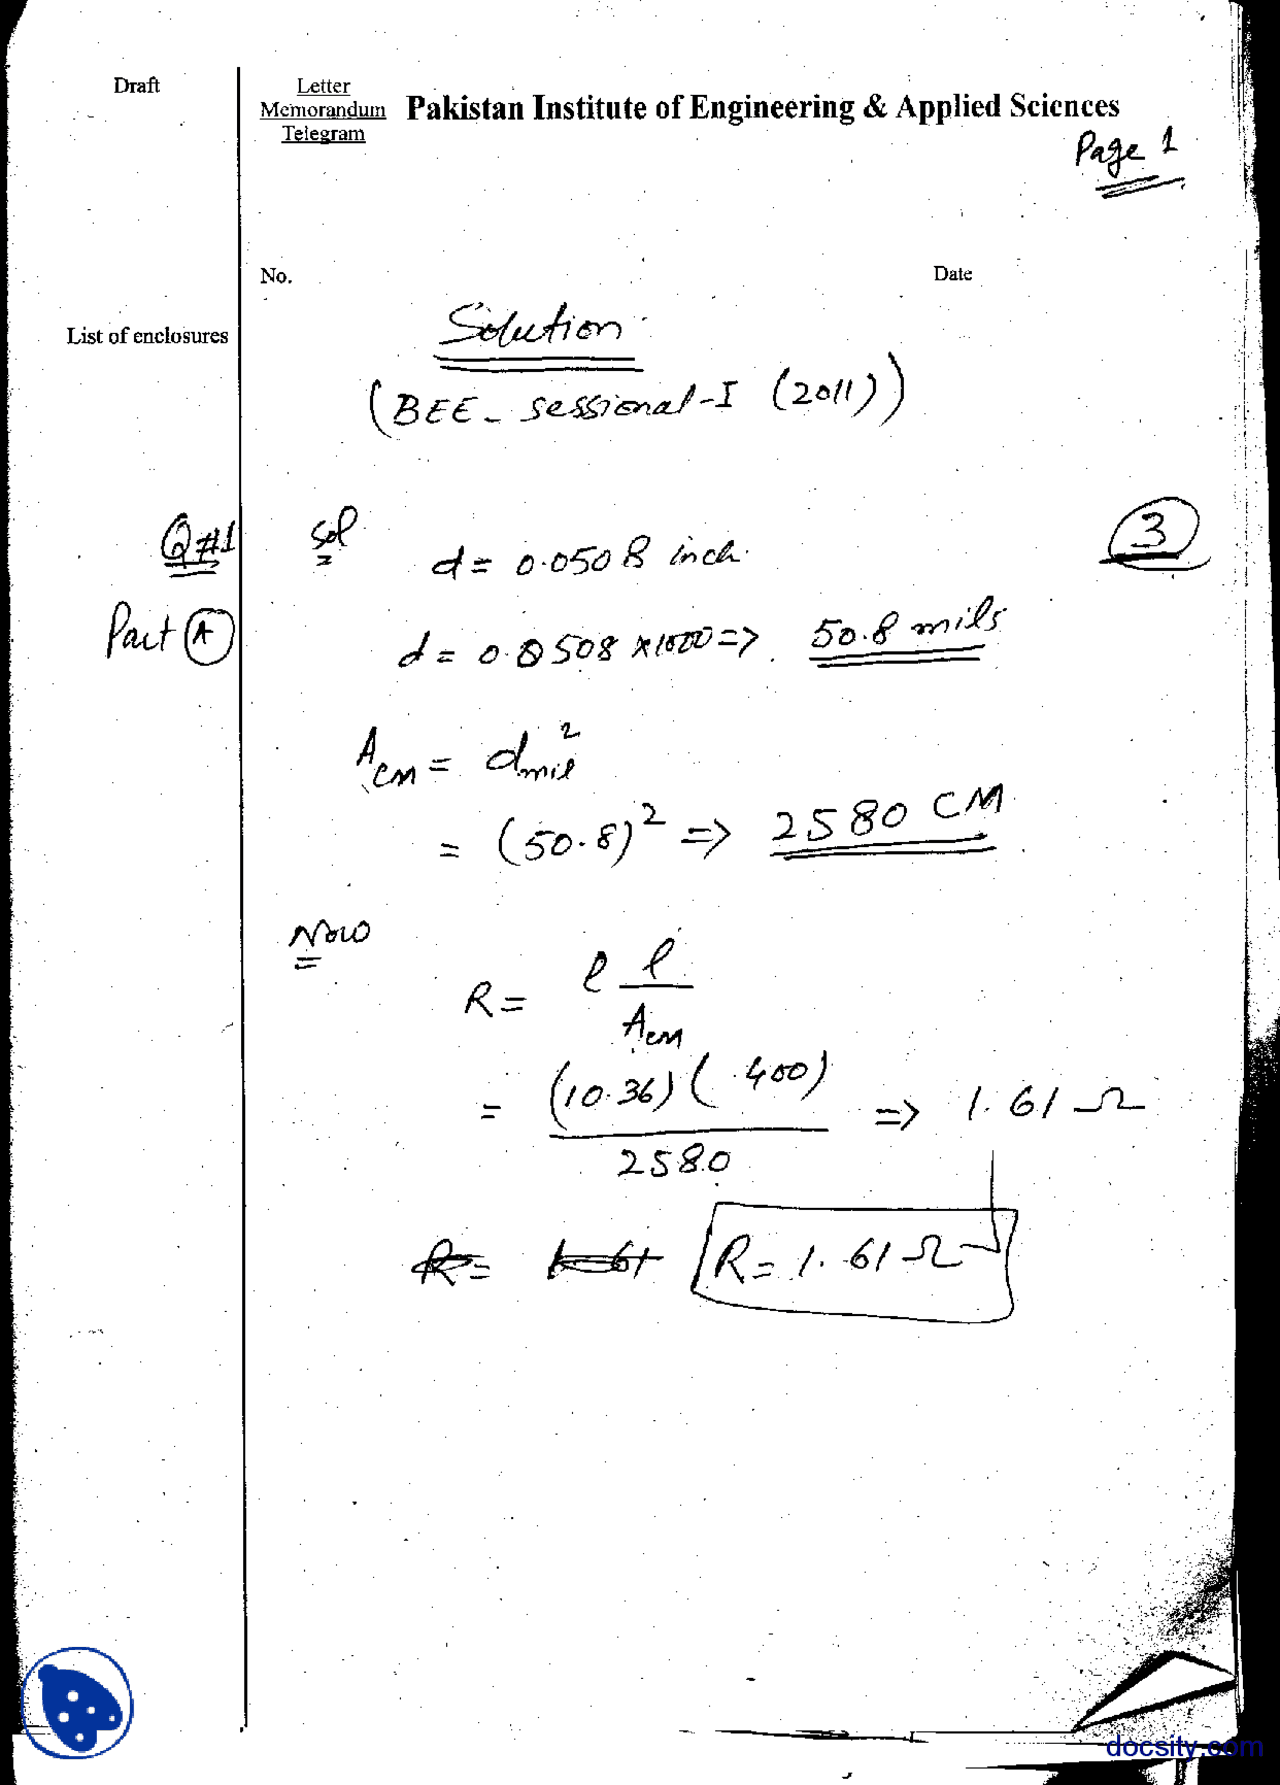 Draft
Letter
Memorandum
Telegram
Pakistan Institute of Engineering & Applied Sciences
Page 1
No.
Date
List of enclosures
Solution
(BEE- sessional-I (2011))
Q#1 Sol
3
d = 0.0508 inch.
Part A
d = 0.0508 x1000 => 50.8 mils
A_CM = d_mil^2
= (50.8)^2 => 2580 CM
Now
R = ρ l / A_CM
= (10.36)(400) / 2580 => 1.61 Ω
R = 1.61 Ω
docsity.com